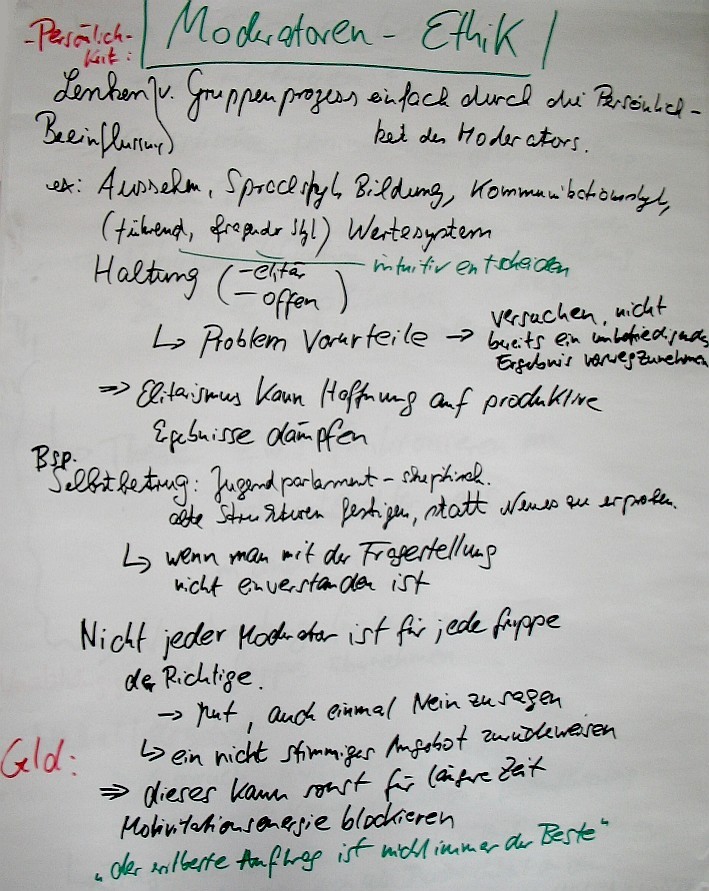 -Persönlich-
keit:
Moderatoren - Ethik
Lenken } v. Gruppenprozess einfach durch die Persönlich-
Beeinflussung } keit des Moderators.
ex: Aussehen, Sprachstyl, Bildung, Kommunikationsstyl,
(führend, fragender Styl) Wertesystem
Haltung (- elitär intuitiv entscheiden
- offen)
↳ Problem Vorurteile → versuchen, nicht
bereits ein unbefriedigendes
Ergebnis vorwegzunehmen
⇒ Elitarismus kann Hoffnung auf produktive
Ergebnisse dämpfen
Bsp.
Selbstbetrug: Jugendparlament - skeptisch.
alte Strukturen festigen, statt Neues zu erproben.
↳ wenn man mit der Fragestellung
nicht einverstanden ist
Nicht jeder Moderator ist für jede Gruppe
der Richtige.
→ Mut, auch einmal Nein zu sagen
↳ ein nicht stimmiges Angebot zurückweisen
Geld:
⇒ dieses kann sonst für längere Zeit
Motivitationsenergie blockieren
"der erstbeste Auftrag ist nicht immer der Beste"